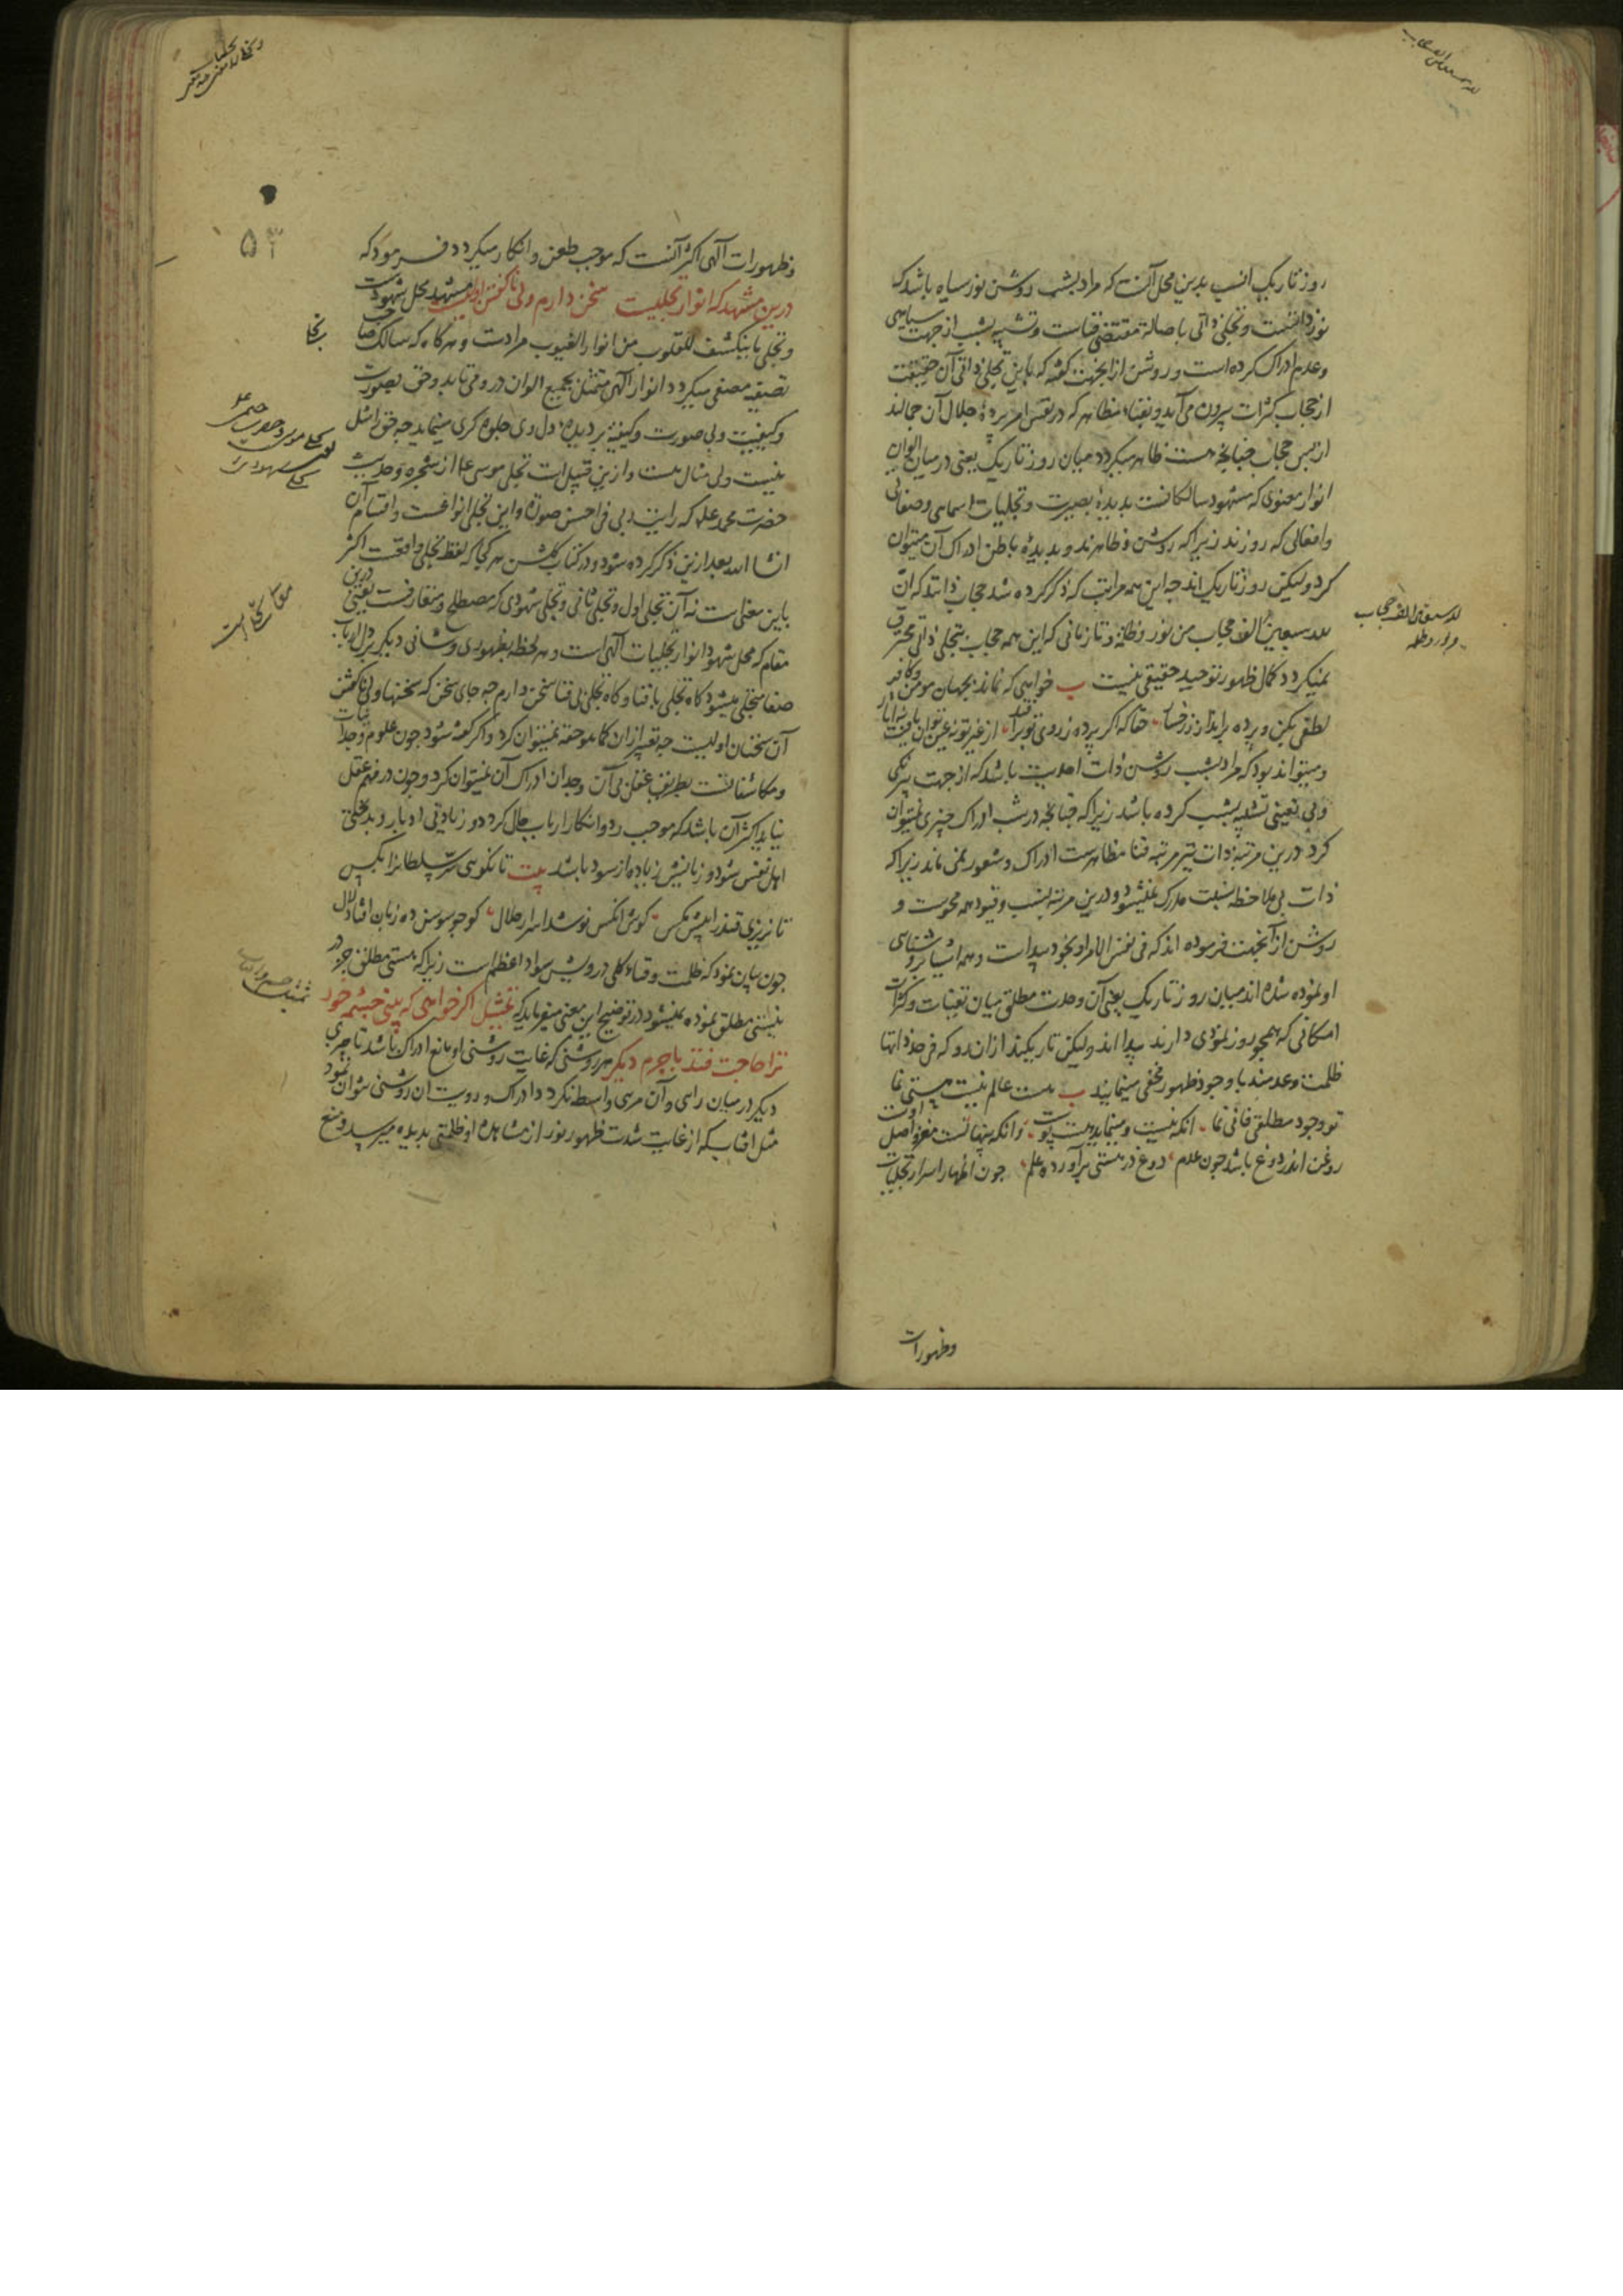 روز تاریک انسب بدین محل آنست که مراد بشب روشن نور سیاه باشد که
نور ذاتست و تجلی ذاتی باصالة مقتضی فناست و تشبیه بشب از جهت سیاهی
و عدم ادراک کرده است و روشن از آنجهت گفته که باین تجلی ذاتی آن حقیقت
از حجاب کثرات بیرون می آید و بفناء مظاهر که در نفس امر پردهٔ جلال آن جمالند
از پس حجاب چنانچه هست ظاهر میگردد میان روز تاریک یعنی در میان الوان
انوار معنوی که مشهود سالکانست بدیدهٔ بصیرت و تجلیات اسمایی و صفاتی
و افعالی که روزند زیرا که روشن و ظاهرند و بدیدهٔ باطن ادراک آن میتوان
کرد ولیکن روز تاریک اند چه این همه مراتب که ذکر کرده شد حجاب ذاتند که ان
لله سبعین الف حجاب من نور و ظلمة و تا زمانی که این همه حجاب بتجلی ذاتی محترق
نمیگردد کمال ظهور توحید حقیقی نیست ب خواهی که نماند بجهان مومن و کافر
لطفی بکن و پرده برانداز ز رخسار حقا که اگر پرده ز روی تو برافتد از غیر تو نه عین توان یافت نه آثار
و میتواند بود که مراد بشب روشن ذات احدیت باشد که از جهت بیرنگی
و بی تعینی تشبیه بشب کرده باشد زیرا که چنانچه در شب ادراک چیزی نمیتوان
کرد درین مرتبهٔ ذات نیز مرتبه فنا مظاهرست ادراک و شعور نمی ماند زیرا که
ذات بی ملاحظه نسبت مدرک نمیشود و درین مرتبه نسب و قیود همه محوست و
روشن از آنجهت فرموده اند که فی نفس الامر او بخود پیداست و همه اشیا بروشناسی
او نموده شده اند میان روز تاریک یعنی آن وحدت مطلق میان تعینات و کثرات
امکانی که همچو روز نمودی دارند پیدا اند ولیکن تاریکند از ان رو که فی حد ذاتها
ظلمت و عدمند با وجود ظهور مخفی مینمایند ب هست عالم نیست هستی نما
تو وجود مطلقی فانی نما آنکه نیست و مینماید هست پوست وانکه پنهانست مغز و اصل اوست
روغن اندر دوغ باشد چون عدم دوغ در هستی برآورده علم چون اظهار اسرار تجلیات
لله سبعین الف حجاب
من نور و ظلمه
وظهورات
وظهورات الهی اکثر آنست که موجب طعن و انکار میگردد فرمود که
درین مشهد که انوار تجلیست سخن دارم ولی ناگفتن اولیست مشهد محل شهودست
و تجلی ما ینکشف للقلوب من انوار الغیوب مرادست و هرگاه که سالک صاحب
تصفیه مصفی میگردد انوار الهی متمثل بجمیع الوان در وی تابد و حق بصورت
و کیفیت و بی صورت و کیفیة بر دیدهٔ دل وی جلوه گری مینماید چه حق را مثل
نیست ولی مثال هست و ازین قبیل است تجلی موسی علم از شجره و حدیث
حضرت محمد علم که رایت ربی فی احسن صورة و این تجلی انواعست و اقسام آن
انشا الله بعد ازین ذکر کرده شود و در کتاب گلشن هر کجا که لفظ تجلی واقعست اکثر
باین معناست نه آن تجلی اول و تجلی ثانی و تجلی شهودی که مصطلح و متعارفست یعنی درین
مقام که محل شهود انوار تجلیات الهی است و هر لحظه بظهوری و شانی دیگر بر دل ارباب
صفا متجلی میشود گاه تجلی با فنا و گاه تجلی بی فنا سخن دارم چه جای سخن که سخنها ولی ناگفتن
آن سخنان اولیست چه تعبیر از ان کما هو حقه نمیتوان کرد و اگر گفته شود چون علوم وجدانیات
و مکاشفاتست بطریق عقل بی آن وجدان ادراک آن نمیتوان کرد و چون در فهم عقل
نیاید اکثر آن باشد که موجب رد و انکار ارباب جدال گردد و زیادتی ادبار و بدبختی
اهل نفس شود و زیانش زیاده از سود باشد بیت تا نگویی سر سلطانرا بکس
تا نریزی قند را پیش مگس گوش آنکس نوشد اسرار جلال کو چو سوسن ده زبان افتاد لال
چون بیان نمود که ظلمت و فناء کلی درویش سواد اعظم است زیرا که هستی مطلق جز در
نیستی مطلق نموده نمیشود در توضیح این معنی میفرماید که تمثیل اگر خواهی که بینی چشمه خور
ترا حاجت فتد با جرم دیگر هر روشنی که غایت روشنی او مانع ادراک باشد تا چیزی
دیگر در میان رایی و آن مرئی واسطه نگردد ادراک و رویت آن روشنی نتوان نمود
مثل آفتاب که از غایت شدت ظهور نور از مشاهده او ظلمتی بدیده میرسد و منع